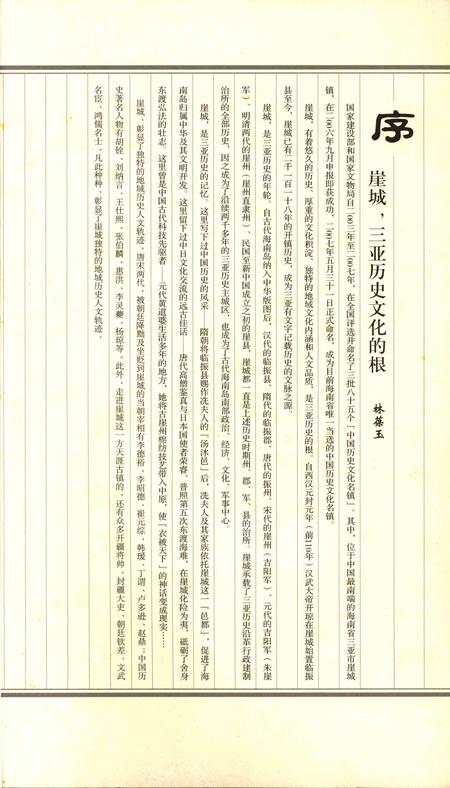 序
崖城，三亚历史文化的根
林葆玉
国家建设部和国家文物局自二00三年至二00七年，在全国评选并命名了三批八十五个「中国历史文化名镇」。其中，位于中国最南端的海南省三亚市崖城
镇，在二00六年九月申报即获成功，二00七年五月三十一日正式命名，成为目前海南省唯一当选的中国历史文化名镇。
崖城，有着悠久的历史、厚重的文化积淀、独特的地域文化内涵和人文品质，是三亚历史的根。自西汉元封元年（前110年）汉武大帝开琼在崖城始置临振
县至今，崖城已有二千一百一十八年的开镇历史，成为三亚有文字记载历史的文脉之源。
崖城，是三亚历史的年轮。自古代海南岛纳入中华版图后，汉代的临振县、隋代的临振郡、唐代的振州、宋代的崖州（吉阳军）、元代的吉阳军（朱崖
军）、明清两代的崖州（崖州直隶州）、民国至新中国成立之初的崖县，崖城都一直是上述历史时期州、郡、军、县的治所。崖城承载了三亚历史沿革行政建制
治所的全部历史，因之成为了沿续两千多年的三亚历史主城区，也成为了古代海南岛南部政治、经济、文化、军事中心。
崖城，是三亚历史的记忆。这里写下过中国历史的风采——隋朝将临振县赐作冼夫人的「汤沐邑」后，冼夫人及其家族依托崖城这一「邑都」，促进了海
南岛归属中华及其文明开发。这里留下过中日文化交流的远古佳话——唐代高僧鉴真与日本国使者荣睿、普照第五次东渡海难，在崖城化险为夷，砥砺了舍身
东渡弘法的壮志。这里曾是中国古代科技先驱者——元代黄道婆生活多年的地方，她将古崖州棉纺技艺带入中原，使「衣被天下」的神话变成现实……
崖城，彰显了独特的地域历史人文轨迹。唐宋两代，被朝廷降黜及坐贬到崖城的当朝宰相有李德裕、李昭德、崔元综、韩瑗、丁谓、卢多逊、赵鼎；中国历
史著名人物有胡铨、刘纳言、王仕熙、张伯麟、惠洪、李灵夔、杨琼等。此外，走进崖城这一方天涯古镇的，还有众多开疆将帅、封疆大吏、朝廷钦差、文武
名宦、鸿儒名士。凡此种种，彰显了崖城独特的地域历史人文轨迹。